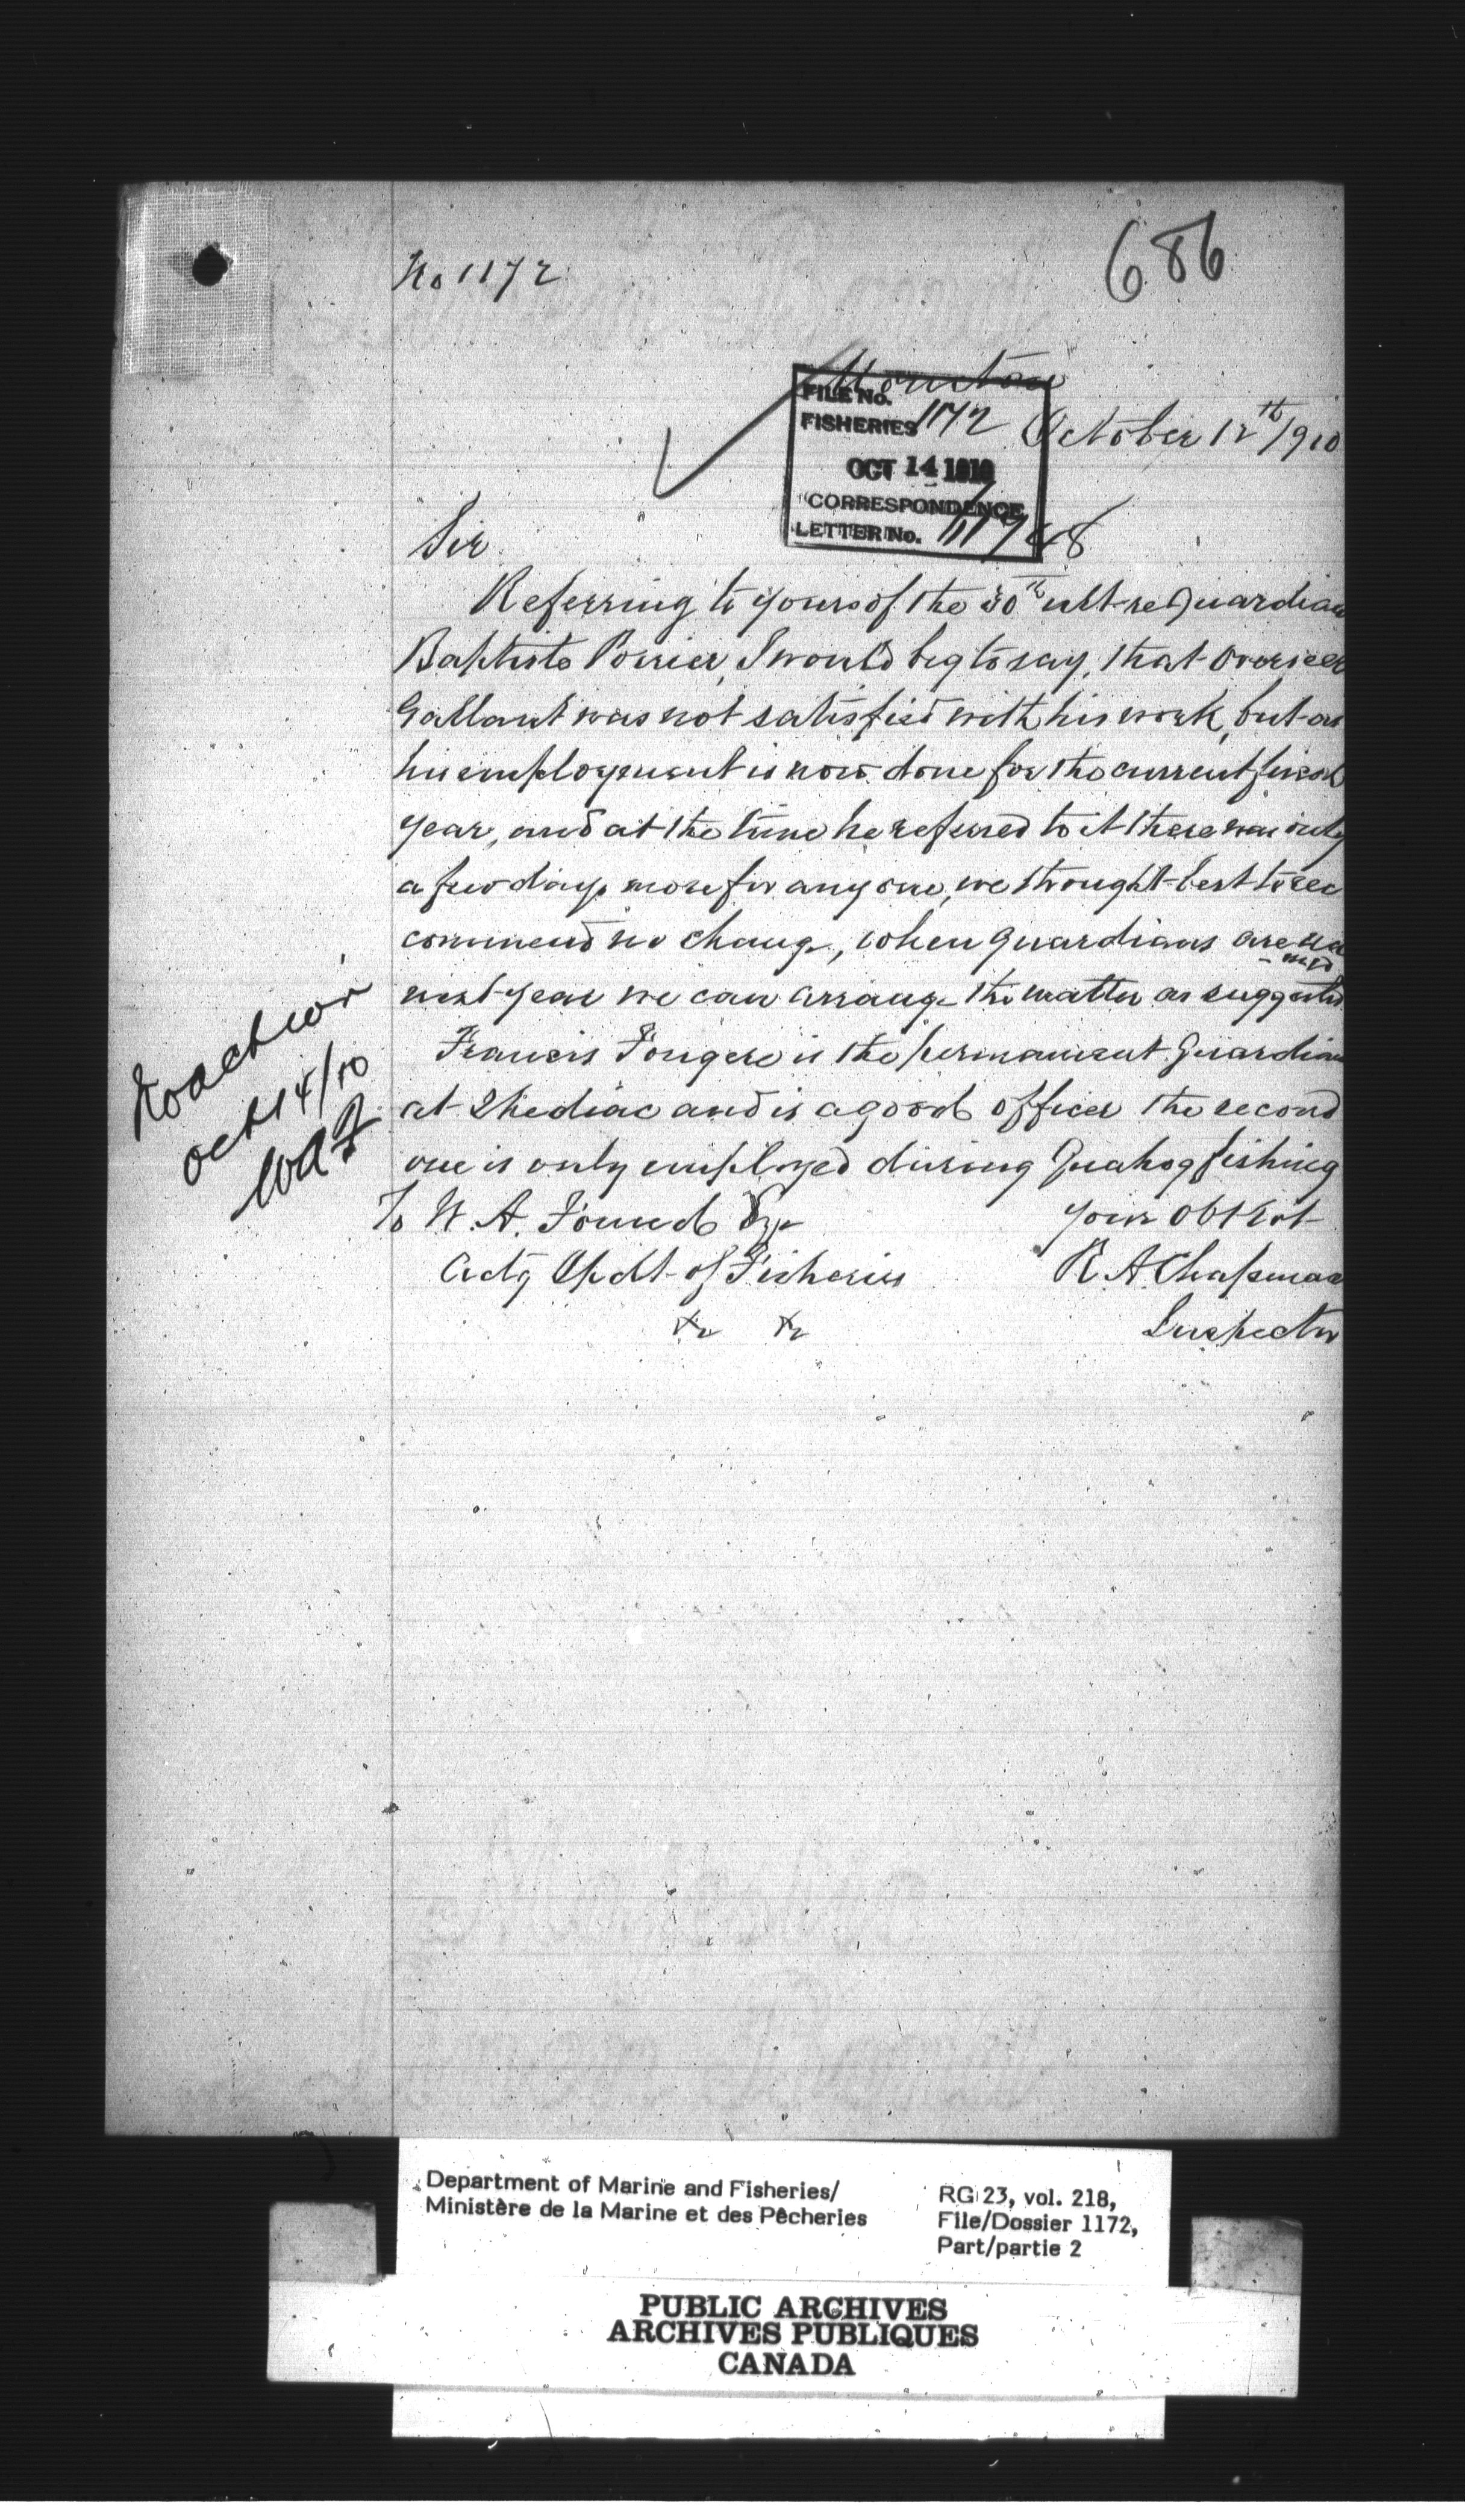 No 1172
686
Moncton
October 12th/910
FILE No.
FISHERIES 1172
OCT 14 1910
CORRESPONDENCE
LETTER No. 11748
Sir
Referring to yours of the 30th ult re Guardian
Baptiste Poirier, I would beg to say, that Overseer
Gallant was not satisfied with his work, but as
his employment is now done for the current fiscal
year, and at the time he referred to it there was only
a few days more for any one, we thought best to rec
commend no change, when guardians are na
-med
next year we can arrange the matter as suggested
Francis Fougere is the permanent Guardian
at Shediac and is a good officer the second
one is only employed during Quahog fishing
To W. A. Found Esq
Your Obt Svt
Actg Supdt of Fisheries
R A Chapman
Inspector
No action
Oct 14/10
WAF
Department of Marine and Fisheries/
Ministère de la Marine et des Pêcheries
RG 23, vol. 218,
File/Dossier 1172,
Part/partie 2
PUBLIC ARCHIVES
ARCHIVES PUBLIQUES
CANADA